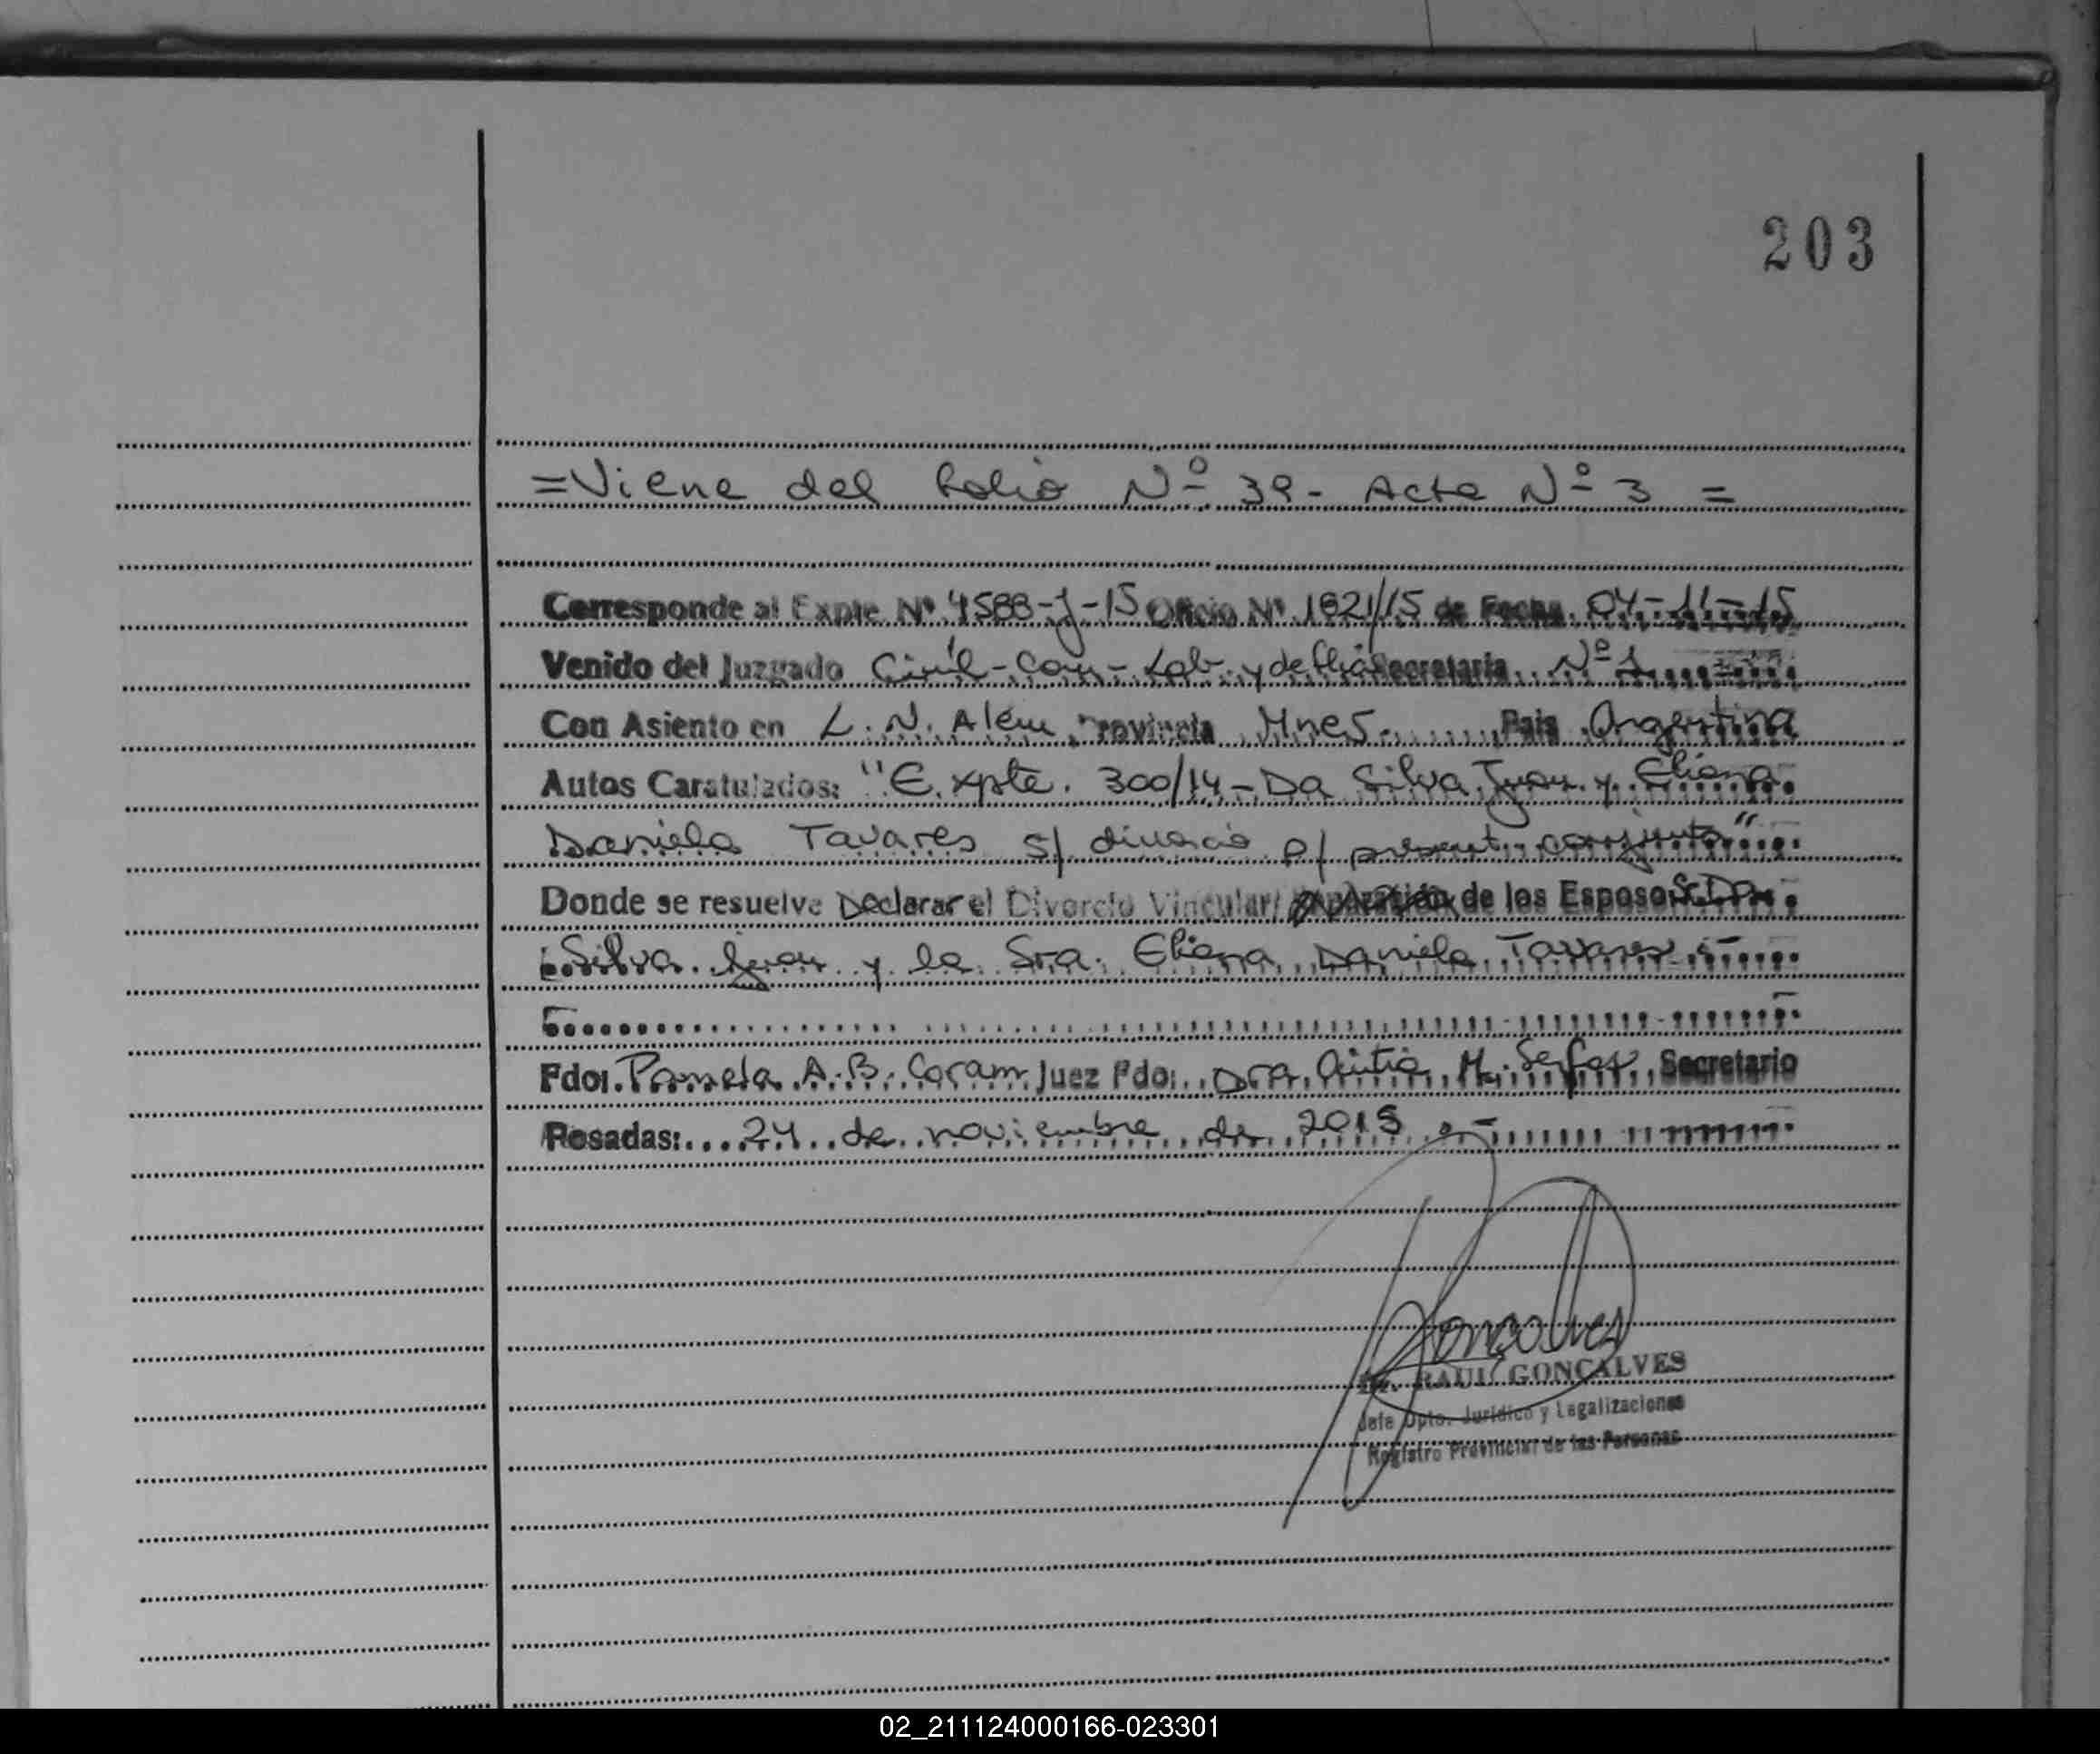 203
=Viene del folio Nº 39- Acta Nº 3 =
Corresponde al Expte. Nº 4588-J-15 Oficio Nº 1821/15 de Fecha 04-11-15
Venido del Juzgado Civil-Com-Lab. y de flia Secretaria Nº 1
Con Asiento en L. N. Alem Provincia Mnes. Pais Argentina
Autos Caratulados: "Expte. 300/14-Da Silva Juan y Eliana
Daniela Tavares s/ divorcio p/ present. conjunta"
Donde se resuelve Declarar el Divorcio Vincular/ de los Esposos Sr. Da
Silva Juan y la Sra. Eliana Daniela Tavares
Fdo: Pamela A. B. Juez Fdo: Dra. M. Secretario
Posadas: 24 de noviembre de 2015
Dr. RAUL GONCALVES
Jefe Dpto. Jurídico y Legalizaciones
Registro Provincial de las Personas
02_211124000166-023301